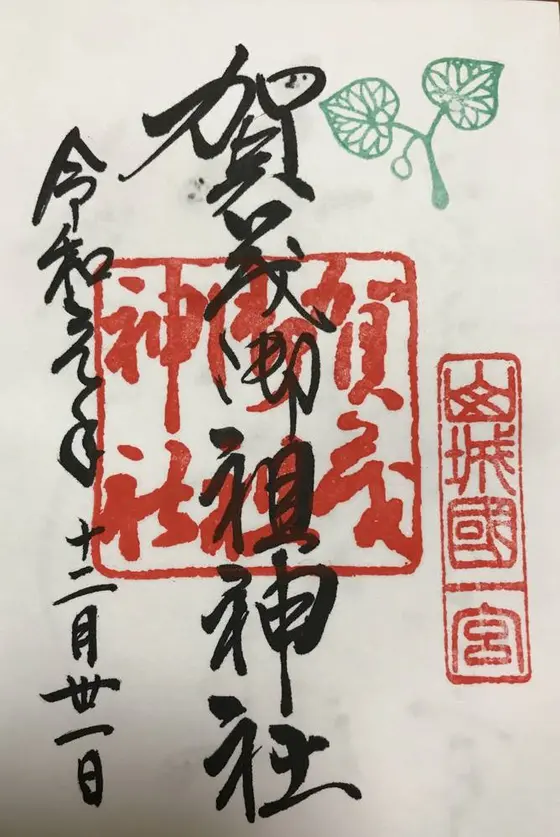 山城國一宮
賀茂御祖神社
賀茂御祖神社
令和元年
十二月丗一日